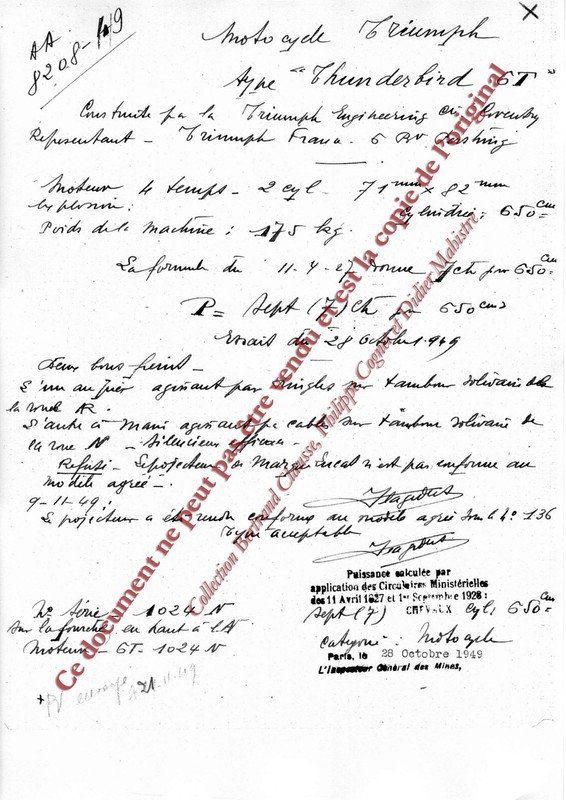 AA
8208-49
Motocycle Triumph
type "Thunderbird 6T"
Construite par la Triumph Engineering Co Coventry
Représentant - Triumph France. 6 Bd Pershing
Moteur 4 temps - 2 cyl - 71 mm x 82 mm
explosion : Cylindrée : 650 cm
Poids de la machine : 175 kg.
La formule du 11-4-27 donne 7ch pour 650 cm
P = Sept (7) Ch 650 cm3
Essait du 28 Octobre 1949
Deux bons freins -
L'un au pied agissant par tringles sur tambour solidaire de
la roue AR.
L'autre à main agissant par cable sur tambour solidaire de
la roue AV - Silencieux efficace -
Refusé - Le projecteur de Marque Lucas n'est pas conforme au
modèle agréé -.
9-11-49 :
Le projecteur a été rendu conforme au modèle agréé sous le No 136
Type acceptable
Puissance calculée par
application des Circulaires Ministérielles
des 11 Avril 1927 et 1er Septembre 1928 :
Sept (7) CHEVAUX Cyl, 650 cm
Catégorie : Motocycle
Paris, le 28 Octobre 1949
L'Inspecteur Général des Mines,
No Série : 1024 N
Sur la fourche en haut à
Moteur - 6T - 1024 N
+ PV 21-11-49
Ce document ne peut pas être vendu et est la copie de l'original
Collection Bertrand Clausse, Philippe Cognet et Didier Mabistre